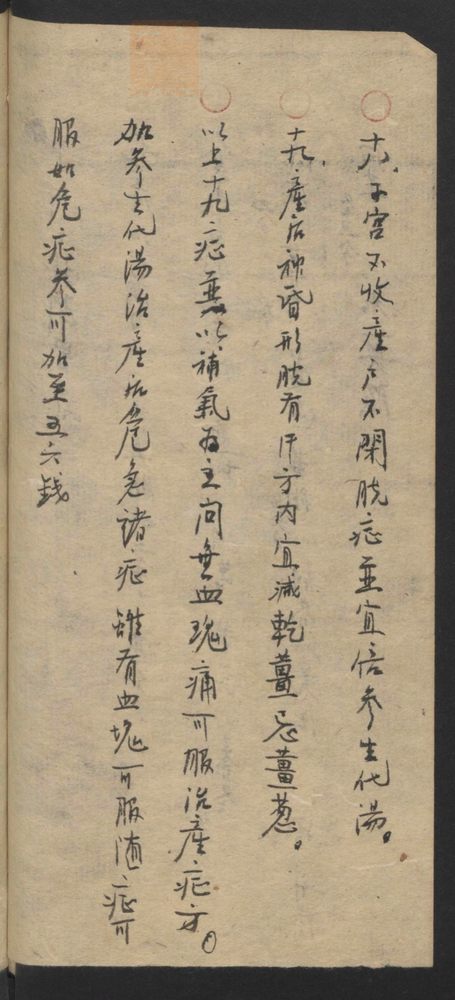 十八、子宮不收產户不閉脱症並宜倍參生化湯。
十九、產后神昏形脱有汗方内宜減乾薑忌薑葱。
以上十九症並以補氣為主問無血塊痛可服治產症方。
加參生化湯治產后危急諸症雖有血塊可服随症可
服如危症参可加至五六錢